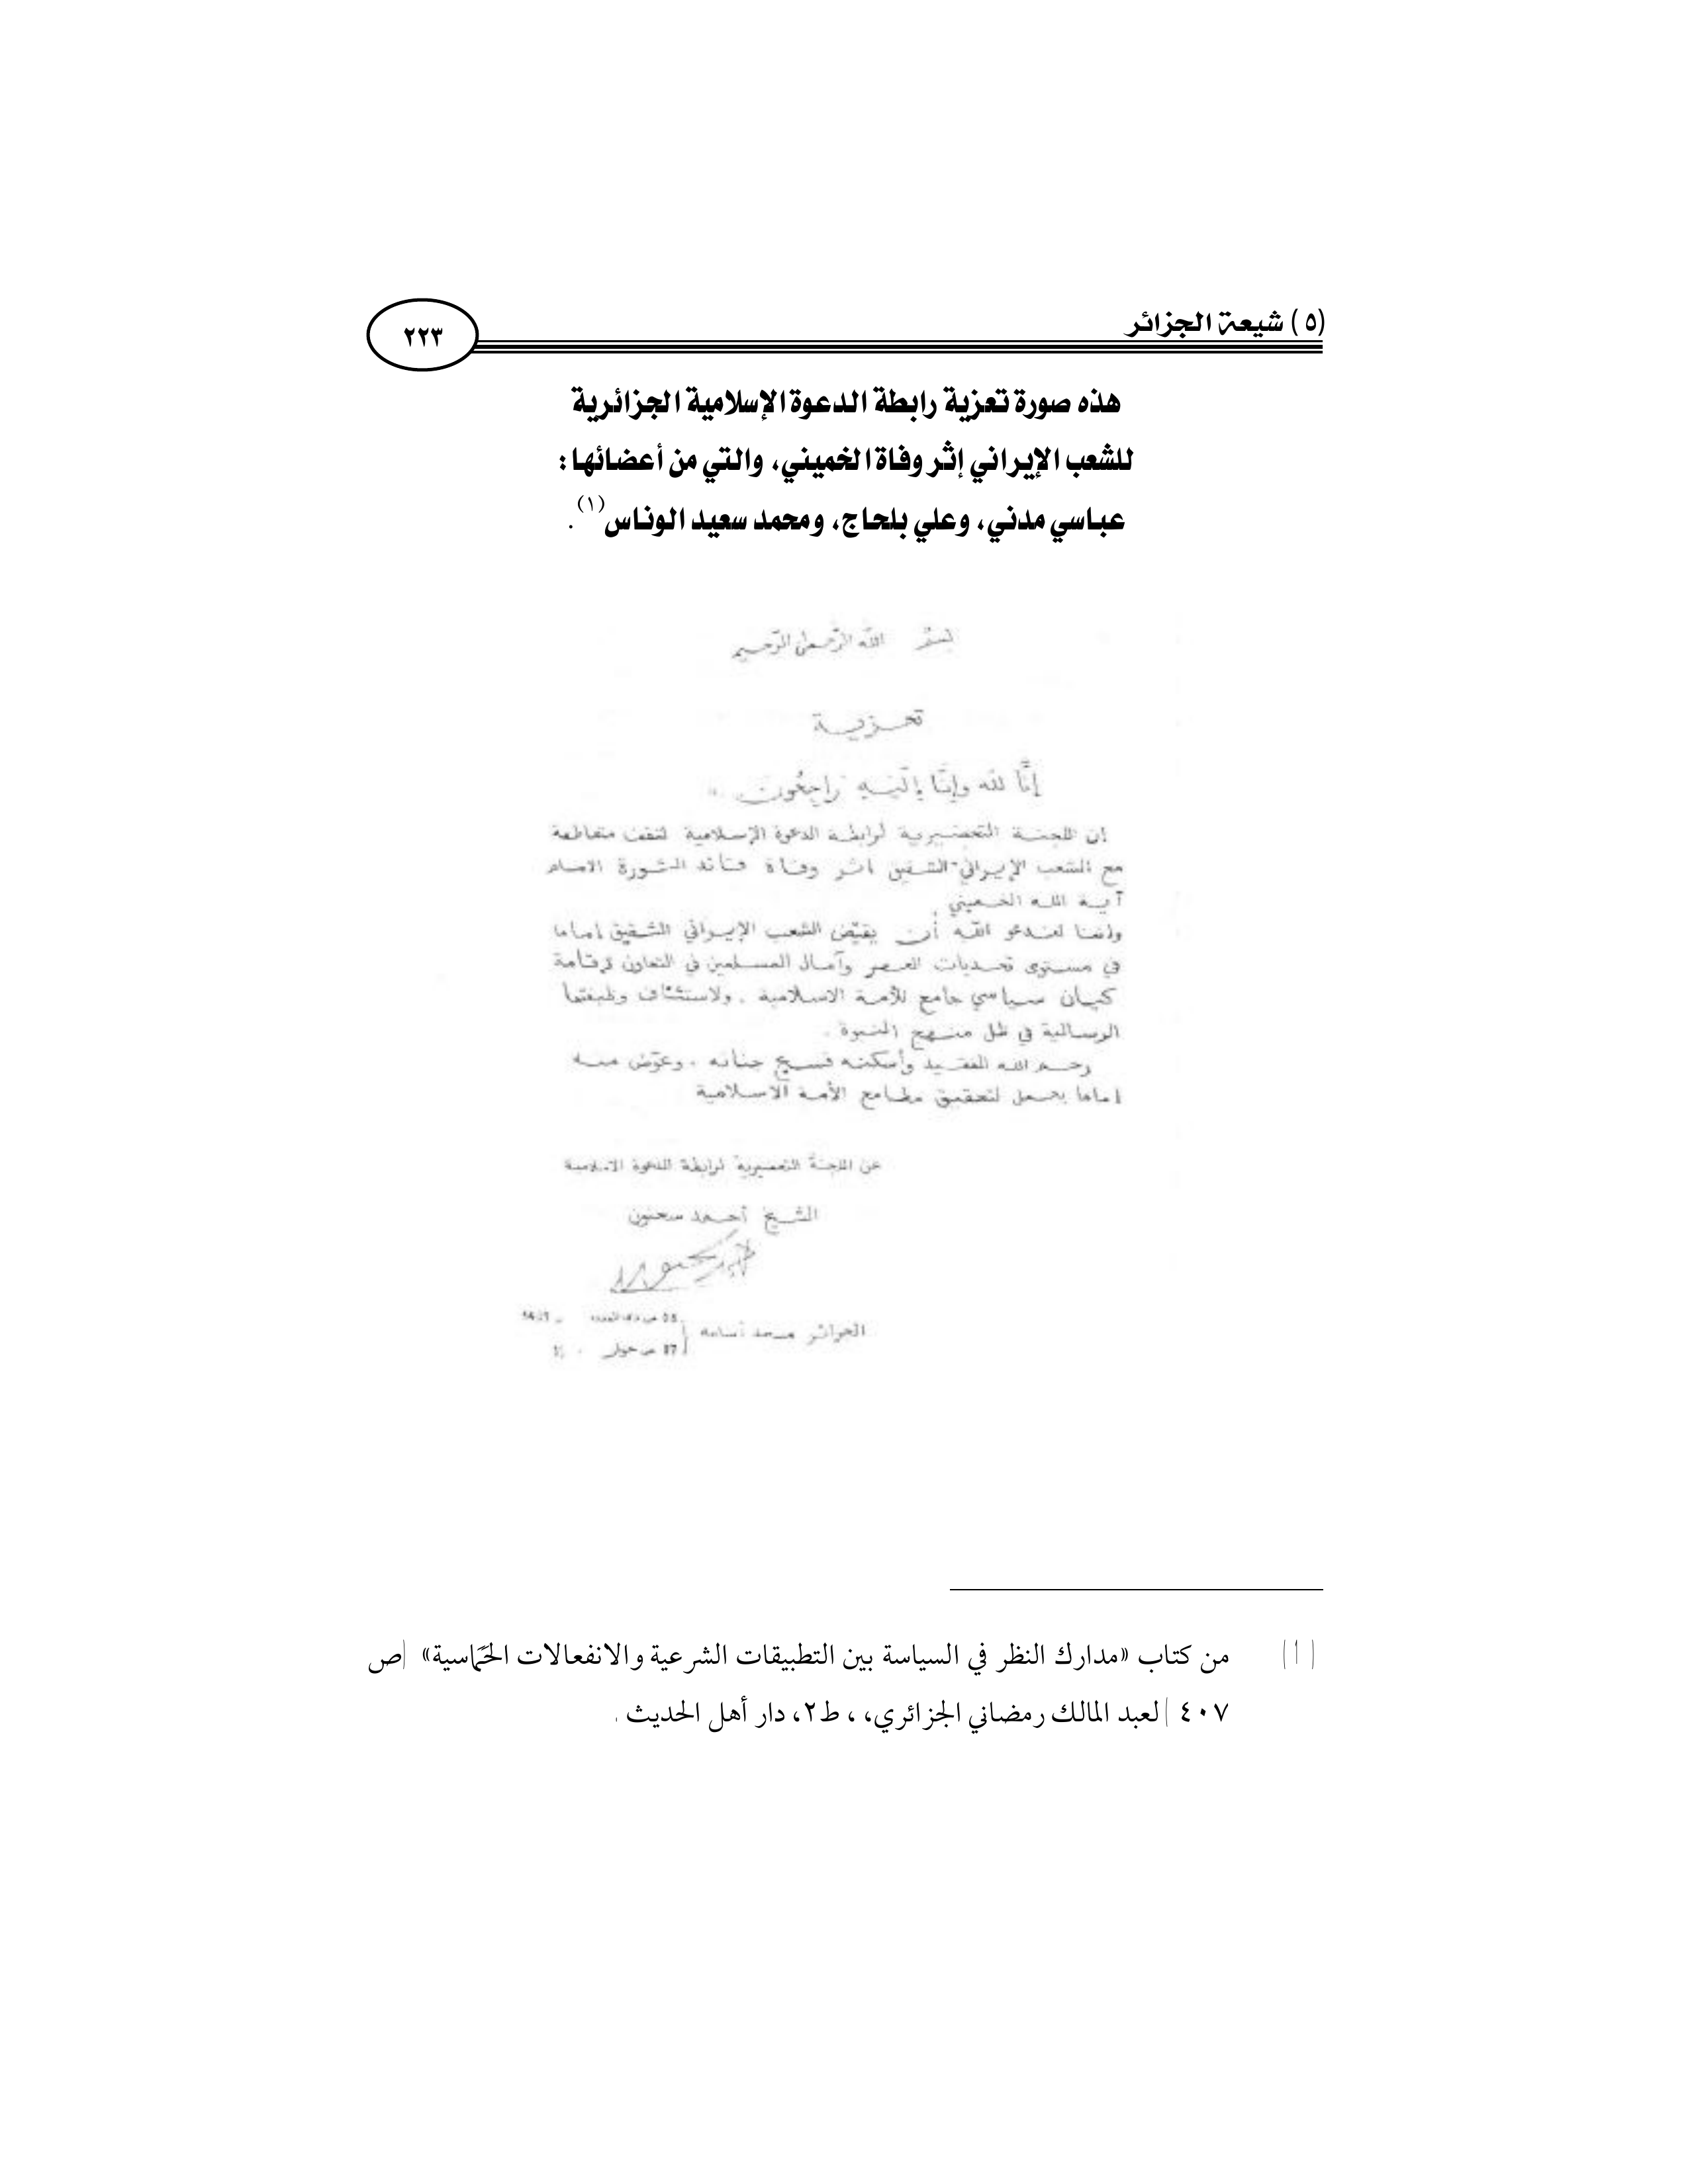 (٥) شيعة الجزائر
٢٢٣
هذه صورة تعزية رابطة الدعوة الإسلامية الجزائرية
للشعب الإيراني إثر وفاة الخميني، والتي من أعضائها:
عباسي مدني، وعلي بلحاج، ومحمد سعيد الوناس(١).
بسم الله الرحمن الرحيم
تعزية
إنَّا لله وإنَّا إليه راجعون
ان اللجنة التحضيرية لرابطة الدعوة الإسلامية لتقف متعاطفة
مع الشعب الإيراني الشقيق اثر وفاة قائد الثورة الامام
آية الله الخميني
واننا لندعو الله أن يقيّض الشعب الإيراني الشقيق إماما
في مستوى تحديات العصر وآمال المسلمين في التعاون لإقامة
كيان سياسي جامع للأمة الاسلامية . ولاستئناف وظيفتها
الرسالية في ظل منهج النبوة .
رحم الله الفقيد وأسكنه فسيح جنانه . وعوّض منه
إماما يعمل لتحقيق مطامح الأمة الاسلامية
عن اللجنة التحضيرية لرابطة الدعوة الاسلامية
الشيخ أحمد سحنون
الجزائر مسجد أسامة
(١) من كتاب «مدارك النظر في السياسة بين التطبيقات الشرعية والانفعالات الحَمَاسية» (ص
٤٠٧) لعبد المالك رمضاني الجزائري، ، ط٢، دار أهل الحديث .